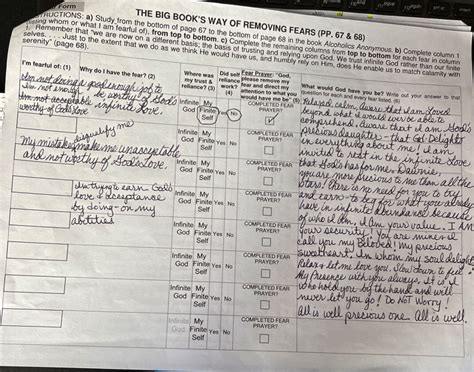 Form
THE BIG BOOK'S WAY OF REMOVING FEARS (PP. 67 & 68)
INSTRUCTIONS: a) Study from the bottom of page 67 to the bottom of page 68 in the book Alcoholics Anonymous. b) Complete column 1
(listing whom or what I am fearful of), from top to bottom. c) Complete the remaining columns from top to bottom for each fear in column
1. Remember that "we are now on a different basis; the basis of trusting and relying upon God. We trust infinite God rather than our finite
selves. . . . Just to the extent that we do as we think He would have us, and humbly rely on Him, does He enable us to match calamity with
serenity" (page 68).
I'm fearful of: (1)
Why do I have the fear? (2)
Where was my trust & reliance? (3)
Did self reliance work? (4)
Fear Prayer: "God, please remove my fear and direct my attention to what you would have me be" (5)
What would God have you be? Write out the question for each and every fear listed. (6)
I'm not doing a good enough job to
I'm not worthy be worthy of God's
I'm not acceptable infinite love.
worthy of God's love.
Infinite God My Finite Self Yes No
COMPLETED FEAR PRAYER?
signify me
My mistakes make me unacceptable
and not worthy of God's love.
Infinite God My Finite Self Yes No
COMPLETED FEAR PRAYER?
I'm trying to earn God's
love & acceptance
by doing - on my
abilities
Infinite God My Finite Self Yes No
COMPLETED FEAR PRAYER?
Infinite God My Finite Self Yes No
COMPLETED FEAR PRAYER?
Infinite God My Finite Self Yes No
COMPLETED FEAR PRAYER?
Infinite God My Finite Self Yes No
COMPLETED FEAR PRAYER?
Relaxed, calm. Aware that I am loved
beyond what I would ever be able to
comprehend. Aware that I am God's
precious daughter - that God delights
in everything about me! I am
invited to rest in the infinite love
that God has for me. Dawnie,
you are more precious to me than all the
stars! There is no need for you to try
and earn - to beg for what you already
have in infinite abundance because
of who I am. I am your value. I AM
your security! You are mine & I
call you my Beloved! My precious
sweetheart, In whom my soul delights
Relax & let me love you. Slow down to feel
My Presence with you always. It is I
who hold you by the hand and will
never let you go! Do NOT Worry!
All is well, precious one. All is well.